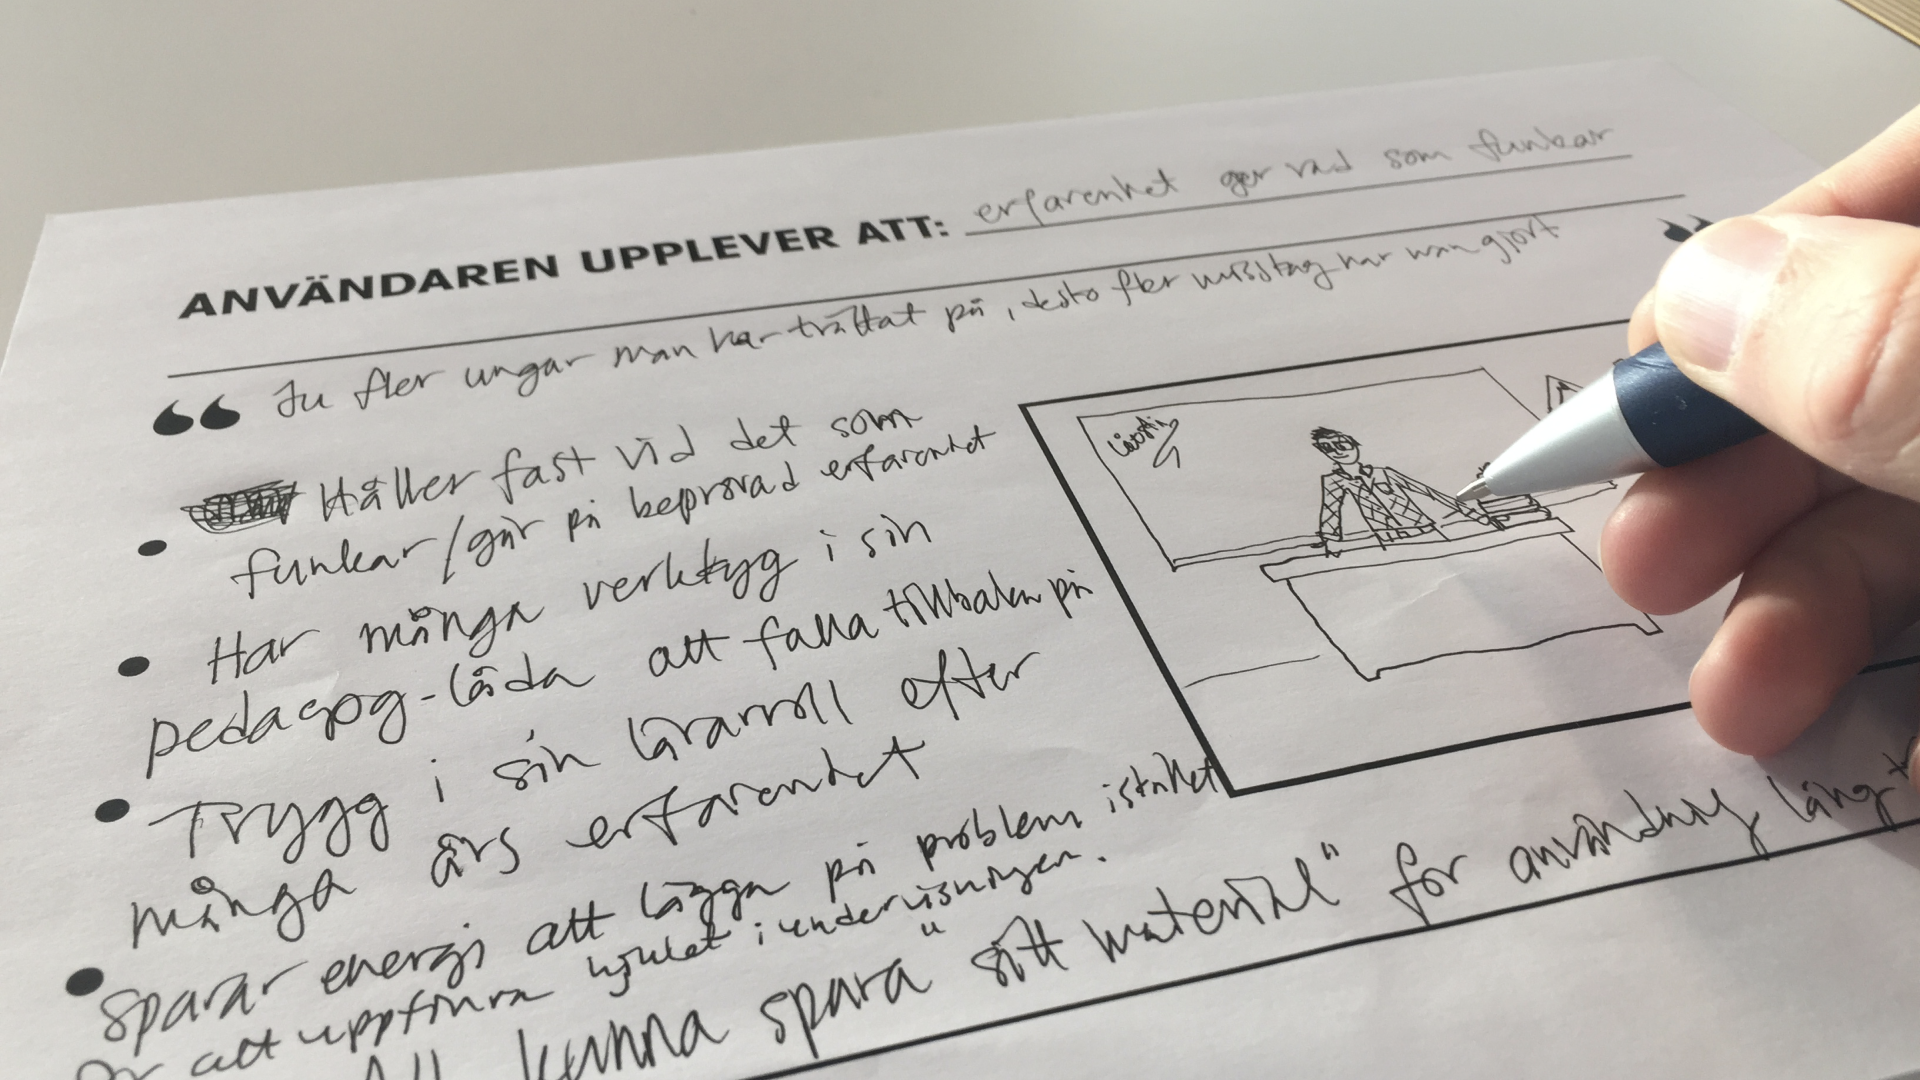 ANVÄNDAREN UPPLEVER ATT: erfarenhet ger råd som funkar
“ Ju fler ungar man har träffat på, desto fler misstag har man gjort ”
• Håller fast vid det som
funkar/går på beprövad erfarenhet
• Har många verktyg i sin
pedagog-låda att falla tillbaka på
• Trygg i sin lärarroll efter
många års erfarenhet
• Sparar energi att lägga på problem istället
för att uppfinna hjulet i undervisningen.
Att kunna spara "sitt material" för användning lång